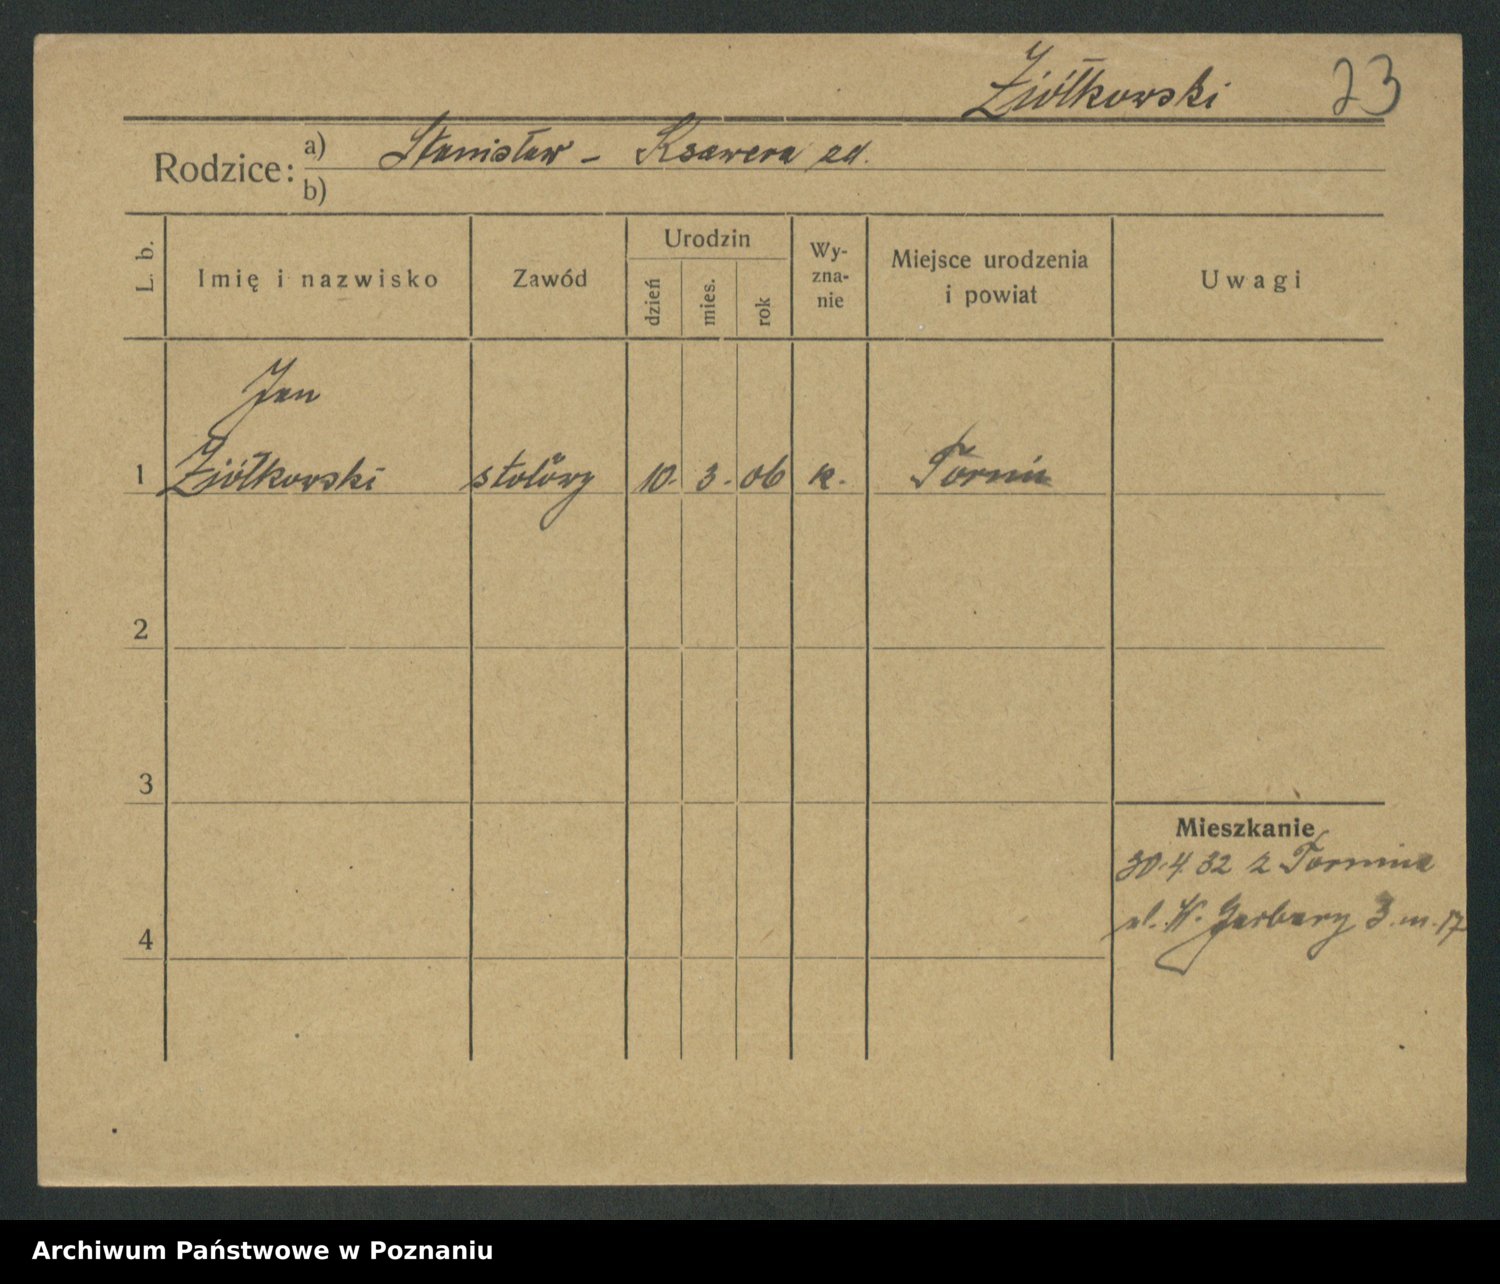 Ziółkowski 23
Rodzice: a) Stanisław - Ksawera
b)
L. b.
Imię i nazwisko
Zawód
Urodzin
dzień
mies.
rok
Wy-
zna-
nie
Miejsce urodzenia
i powiat
Uwagi
Jan
1 Ziółkowski 10. 3. 06 k.
2
3
4
Mieszkanie
30.4.32 z
ul. W. Garbary 3 m. 17
Archiwum Państwowe w Poznaniu